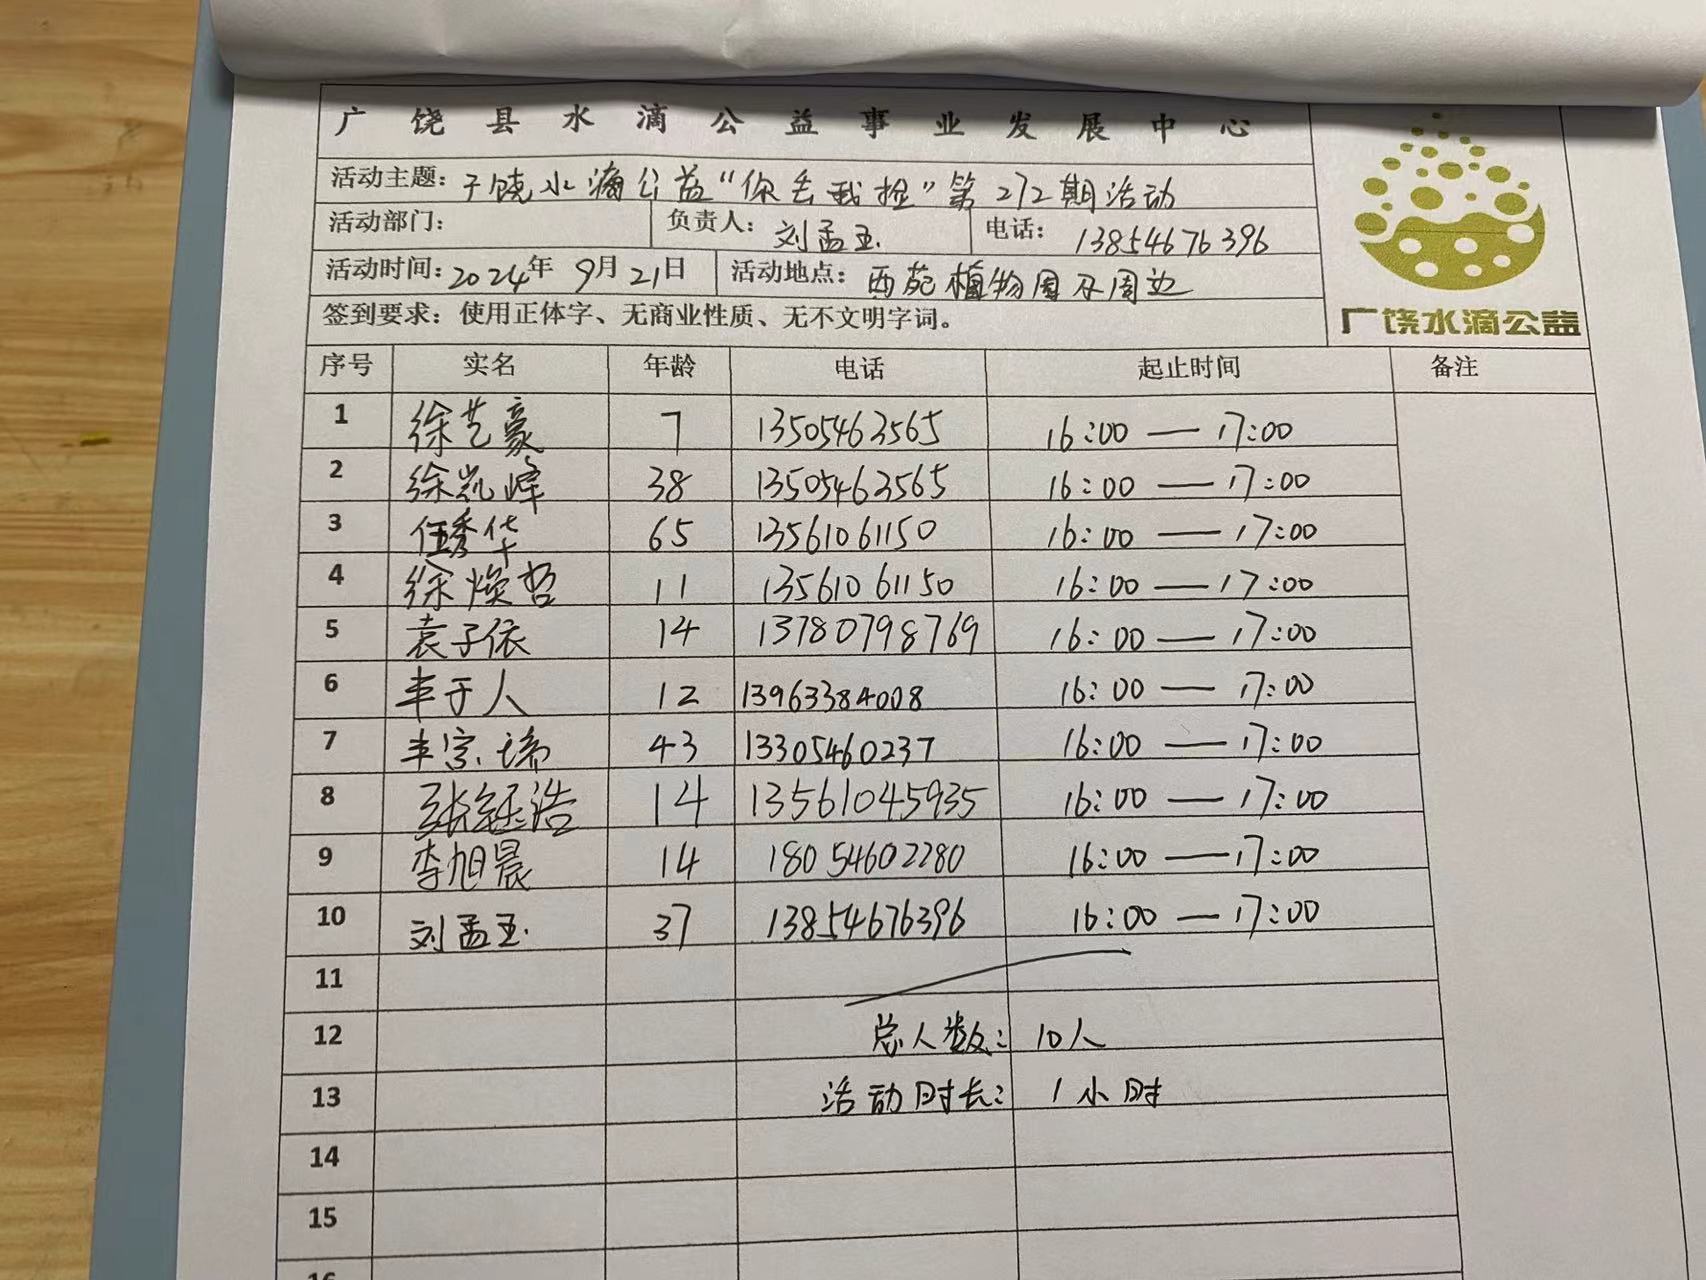 广饶县水滴公益事业发展中心
活动主题：广饶水滴公益“你丢我捡”第272期活动
活动部门： 负责人：刘孟玉 电话：13854676396
活动时间：2024年9月21日 活动地点：西苑植物园及周边
签到要求：使用正体字、无商业性质、无不文明字词。
广饶水滴公益
序号 实名 年龄 电话 起止时间 备注
1 徐艺豪 7 13505463565 16:00 — 17:00
2 徐凯峰 38 13505463565 16:00 — 17:00
3 任秀华 65 13561061150 16:00 — 17:00
4 徐焕哲 11 13561061150 16:00 — 17:00
5 袁子依 14 13780798769 16:00 — 17:00
6 丰于人 12 13963384008 16:00 — 17:00
7 丰宗瑞 43 13305460237 16:00 — 17:00
8 张钰浩 14 13561045935 16:00 — 17:00
9 李旭晨 14 18054602280 16:00 — 17:00
10 刘孟玉 37 13854676396 16:00 — 17:00
11
12 总人数：10人
13 活动时长：1小时
14
15
16